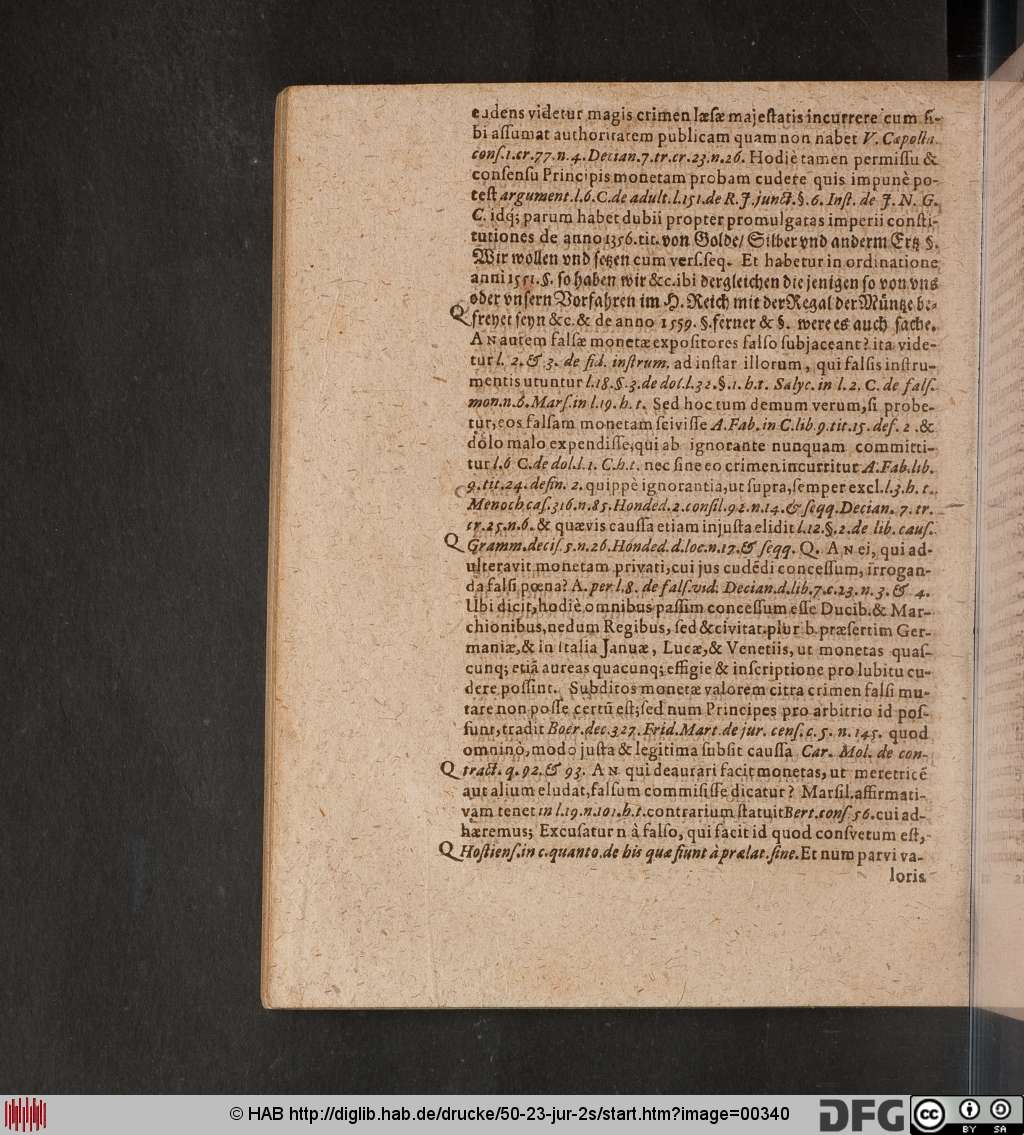 cudens videtur magis crimen læſæ majeſtatis incurrere cum ſi-
bi aſſumat authoritatem publicam quam non habet V. Capolla.
conſ.1.cr.77.n.4.Decian.7.tr.cr.23.n.26. Hodiè tamen permiſſu &
conſenſu Principis monetam probam cudere quis impunè po-
teſt argument.l.6.C.de adult.l.151.de R.J.junct.§.6. Inſt. de J. N. G.
C. idq́; parum habet dubii propter promulgatas imperii conſti-
tutiones de anno 1356.tit.von Golde/ Silber vnd anderm Ertz §.
Wir wollen vnd ſetzen cum verſ.ſeq. Et habetur in ordinatione
anni 1551.§. ſo haben wir &c.ibi dergleichen die jenigen ſo von vns
oder vnſern Vorfahren im H. Reich mit der Regal der Müntze be-
Q freyet ſeyn &c. & de anno 1559. §.ferner & §. were es auch ſache.
AN autem falſæ monetæ expoſitores falſo ſubjaceant? ita vide-
tur l. 2. & 3. de fid. inſtrum. ad inſtar illorum, qui falſis inſtru-
mentis utuntur l.18.§.3.de dol.l.32.§.1.h.t. Salyc. in l.2. C. de falſ.
mon.n.6.Marſ.in l.19.h.t. Sed hoc tum demum verum, ſi probe-
tur, eos falſam monetam ſciviſſe A.Fab.in C.lib.9.tit.15.def. 2 .&
dolo malo expendiſſe, qui ab ignorante nunquam committi-
tur l.6 C.de dol.l.1. C.h.t. nec ſine eo crimen incurritur A.Fab.lib.
9.tit.24. defin. 2. quippè ignorantia, ut ſupra, ſemper excl.l.3.h.t.
Menoch caſ.316.n.85.Honded.2.conſil.92.n.14.& ſeqq.Decian. 7. tr.
cr.25.n.6. & quævis cauſſa etiam injuſta elidit l.12.§.2.de lib. cauſ.
Q Gramm.deciſ.5.n.26.Honded.d.loc.n.17.& ſeqq. Q. AN ei, qui ad-
ulteravit monetam privati, cui jus cudēdi conceſſum, irrogan-
da falſi pœna? A. per l.8. de falſ.vid. Decian.d.lib.7.c.23.n.3. & 4.
Ubi dicit, hodiè omnibus paſſim conceſſum eſſe Ducib. & Mar-
chionibus, nedum Regibus, ſed & civitat. plur b. præſertim Ger-
maniæ, & in Italia Januæ, Lucæ, & Venetiis, ut monetas quaſ-
cunq; etiā aureas quacunq; effigie & inſcriptione pro lubitu cu-
dere poſſint. Subditos monetæ valorem citra crimen falſi mu-
tare non poſſe certū eſt; ſed num Principes pro arbitrio id poſ-
ſunt, tradit Boër.dec.327.Frid.Mart de jur. cenſ.c.5. n. 145. quod
omninò, modo juſta & legitima ſubſit cauſſa Car. Mol. de con-
Q tract. q.92.& 93. AN qui deaurari facit monetas, ut meretricē
aut alium eludat, falſum commiſiſſe dicatur? Marſil. affirmati-
vam tenet in l.19.n.101.h.t. contrarium ſtatuit Bert.conſ 56. cui ad-
hæremus; Excuſatur n à falſo, qui facit id quod conſvetum eſt,
Q Hoſtienſ.in c.quanto.de his quæ fiunt à prælat.ſine. Et num parvi va-
loris
© HAB http://diglib.hab.de/drucke/50-23-jur-2s/start.htm?image=00340
DFG
cc
BY SA